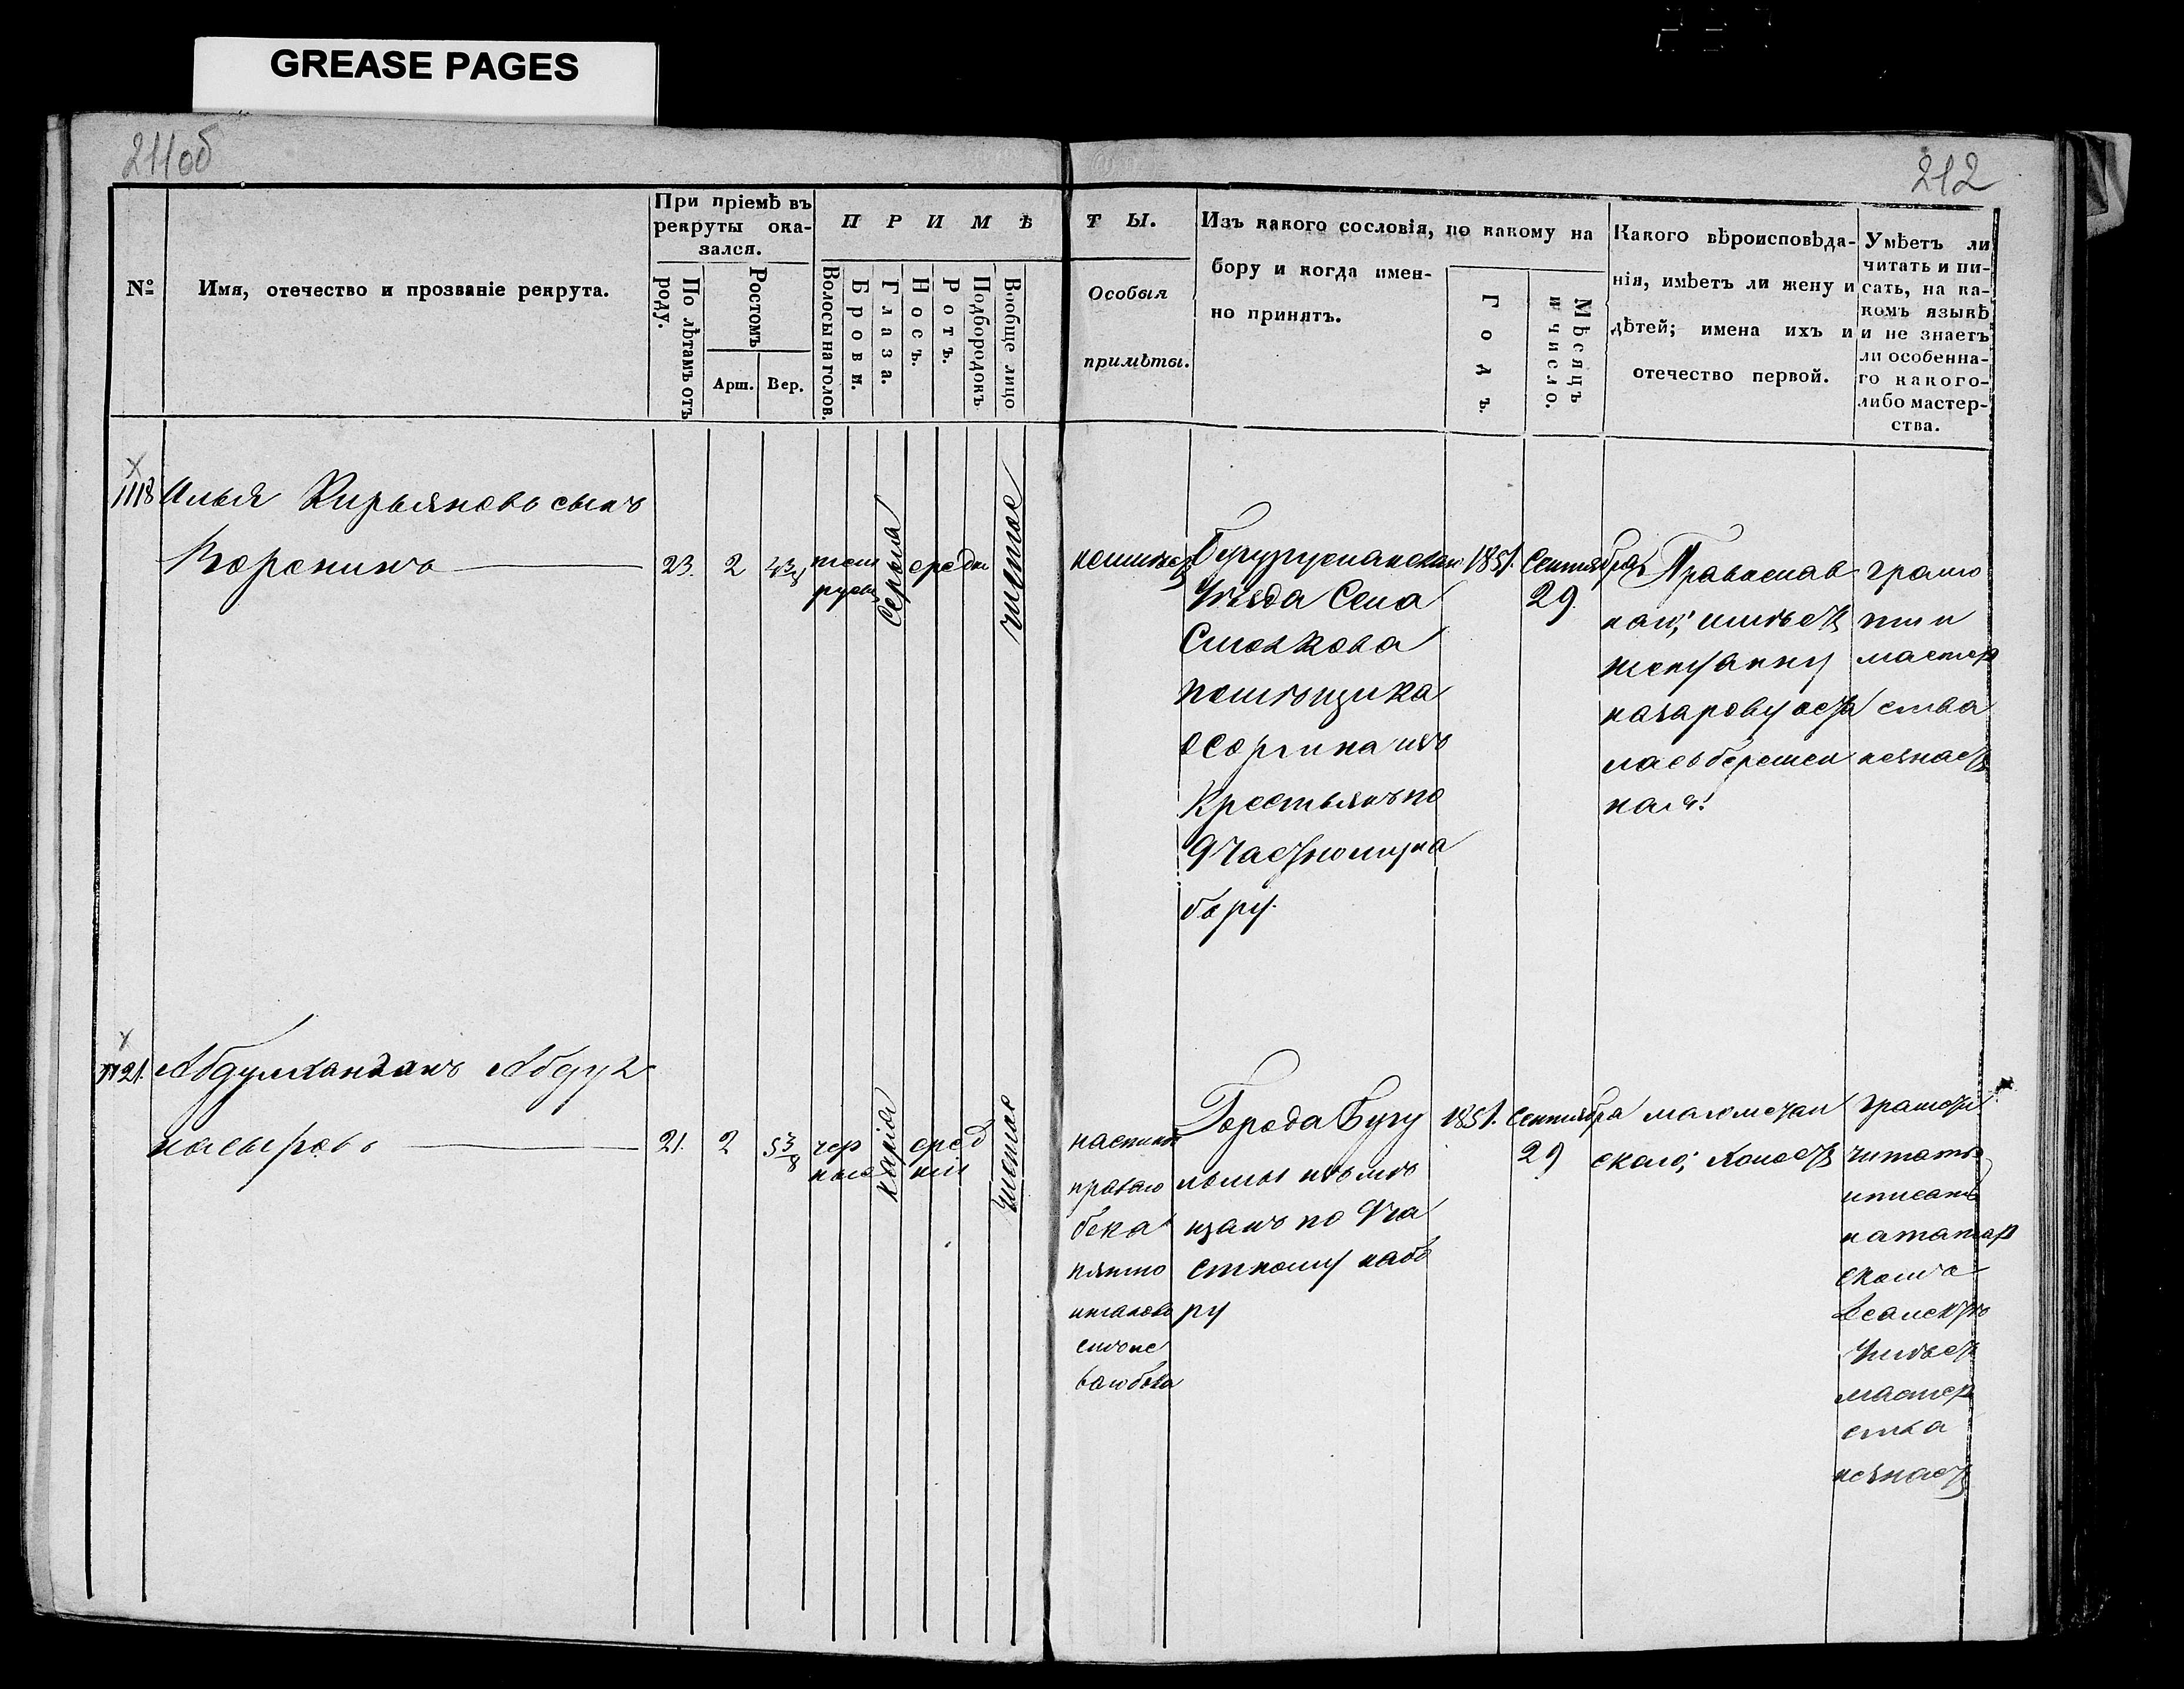 GREASE PAGES
211об
212
№
Имя, отечество и прозваніе рекрута.
При пріемѣ въ
рекруты ока-
зался.
По лѣтамъ отъ
роду.
Ростомъ
Арш.
Вер.
ПРИМѢ
Волосы на голов.
Брови.
Глаза.
Носъ.
Ротъ.
Подбородокъ
Вообще лицо
ТЫ.
Особыя
примѣты.
Изъ какого сословія, по какому на
бору и когда имен-
но принятъ.
Годъ.
Мѣсяцъ
и число.
Какого вѣроисповѣда-
нія, имѣетъ ли жену и
дѣтей; имена ихъ и
отечество первой.
Умѣетъ ли
читать и пи-
сать, на ка-
комъ языкѣ
и не знаетъ
ли особенна-
го какого-
либо мастер-
ства.
1118
Илья Кирьяновъ сынъ
Воронинъ
23.
2
4 3/8
темн
русы
серыя
средн
чистое
Бугурусланскаго
Уѣзда Села
помѣщика
изъ
Крестьянъ по
9 частному на
бору.
1851.
Сентября
29.
Православ
наго; имѣетъ
жену Анну
Назарову оста
лась беремен
ная.
грамо
ты и
мастер
ства
незнаетъ
1121.
Абдул
насыровъ
21.
2
5 3/8
чер
ные
карія
сред
ніе
чистое
праваго
бока
пятно
Города Бугу
льмы изъ мѣ
щанъ по 9 ча
стному набо
ру
1851.
Сентября
29
магометан
скаго; холостъ
грамоти
читать
и писать
на татар
скомъ
Умѣетъ
мастер
ства
незнаетъ